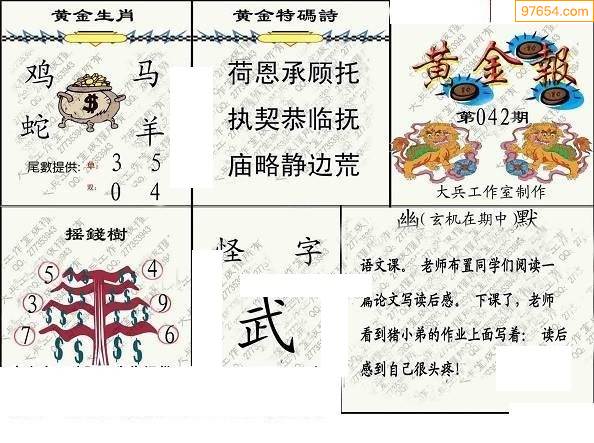 97654.com
黄金生肖
鸡 马
蛇 羊
尾數提供: 单: 3 5
双: 0 4
黄金特碼詩
荷恩承顾托
执契恭临抚
庙略静边荒
黄金報
第042期
大兵工作室制作
摇錢樹
5 4
3 9
7 6
怪 字
武
幽(玄机在期中)默
语文课。 老师布置同学们阅读一
篇论文写读后感。 下课了，老师
看到猪小弟的作业上面写着： 读后
感到自己很头疼！